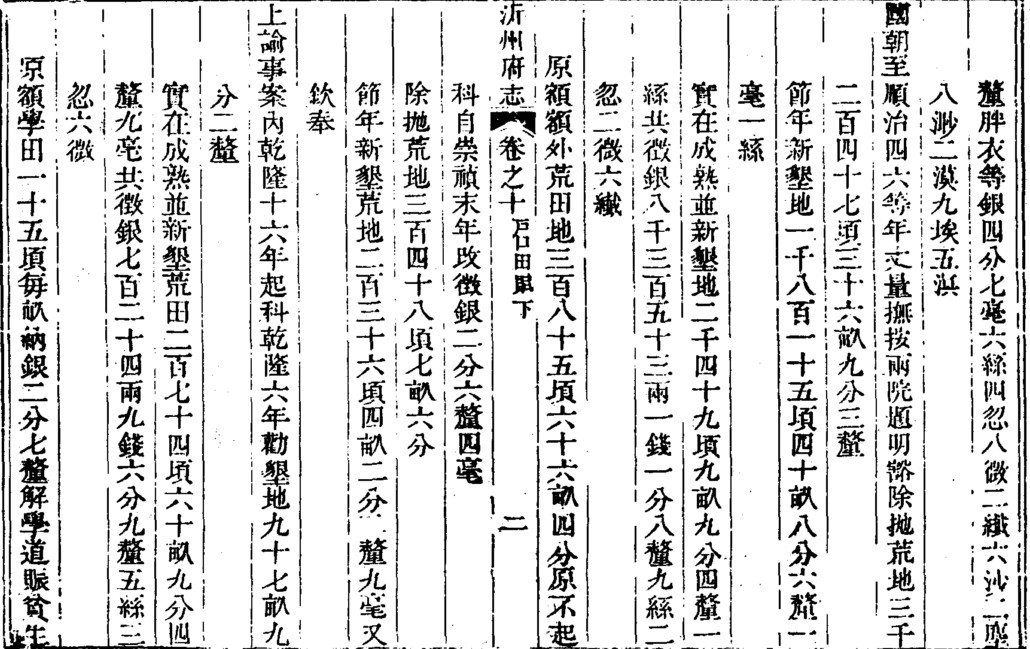 釐胖衣等銀四分七毫六絲四忽八微二纖六沙二塵
八渺二漠九埃五湨
國朝至順治四六等年丈量撫按兩院題明豁除拋荒地三千
二百四十七頃三十六畝九分三釐
節年新墾地一千八百一十五頃四十畝八分六釐一
毫一絲
實在成熟並新墾地二千四十九頃九畝九分四釐一
絲共徵銀八千三百五十三兩一錢一分八釐九絲二
忽二微六纖
原額額外荒田地三百八十五頃六十六畝四分原不起
沂州府志 卷之十 戶口田賦下 二
科自崇禎末年改徵銀二分六釐四毫
除拋荒地三百四十八頃七畝六分
節年新墾荒地二百三十六頃四畝二分二釐九毫又
欽奉
上諭事案內乾隆十六年起科乾隆六年勸墾地九十七畝九
分二釐
實在成熟並新墾荒田二百七十四頃六十畝九分四
釐九毫共徵銀七百二十四兩九錢六分九釐五絲三
忽六微
原額學田一十五頃每畝納銀二分七釐解學道賑貧生